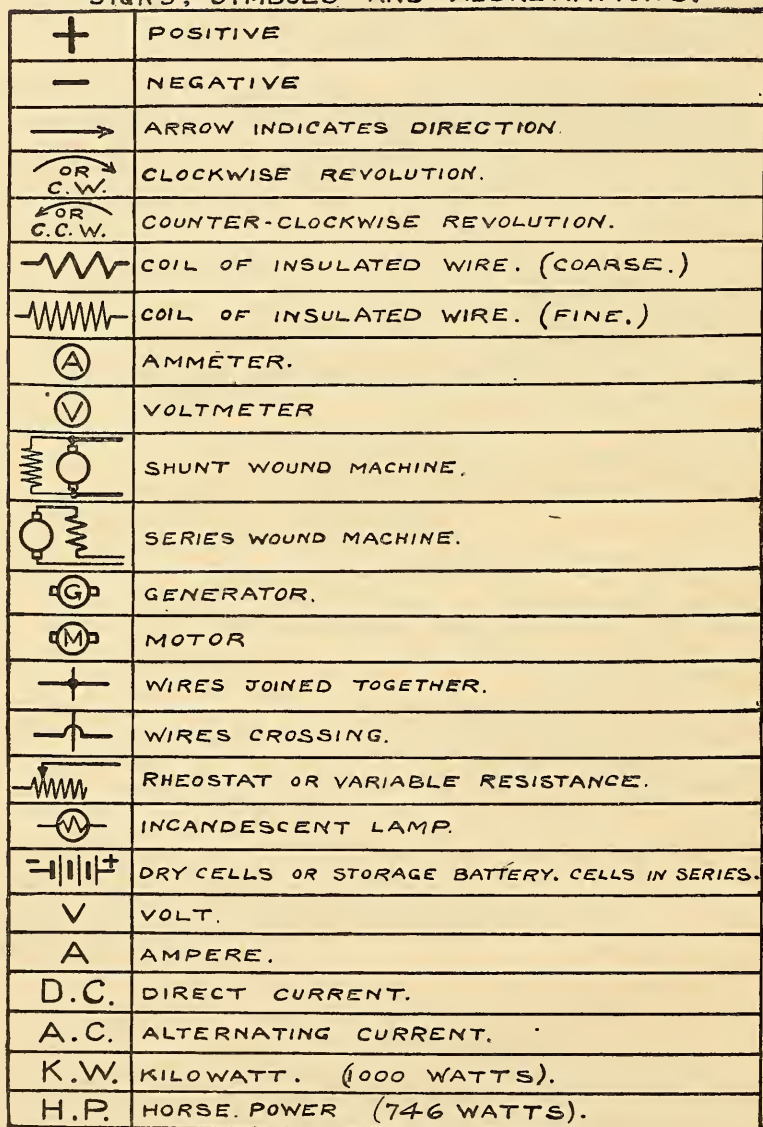 SIGNS, SYMBOLS AND ABBREVIATIONS.
+ POSITIVE
− NEGATIVE
ARROW INDICATES DIRECTION.
OR C.W. CLOCKWISE REVOLUTION.
OR C.C.W. COUNTER-CLOCKWISE REVOLUTION.
COIL OF INSULATED WIRE. (COARSE.)
COIL OF INSULATED WIRE. (FINE.)
A AMMETER.
V VOLTMETER
SHUNT WOUND MACHINE.
SERIES WOUND MACHINE.
G GENERATOR.
M MOTOR
WIRES JOINED TOGETHER.
WIRES CROSSING.
RHEOSTAT OR VARIABLE RESISTANCE.
INCANDESCENT LAMP.
− + DRY CELLS OR STORAGE BATTERY. CELLS IN SERIES.
V VOLT.
A AMPERE.
D.C. DIRECT CURRENT.
A.C. ALTERNATING CURRENT.
K.W. KILOWATT. (1000 WATTS).
H.P. HORSE. POWER (746 WATTS).